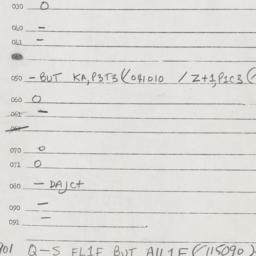 030 O
040 -
041 -
050 - BUT KA,P3T3(041010 / Z+1,P1C3(
060 O
-
070 O
071 O
080 - DAJC+
090 -
091 -
901 Q-S FL1F BUT A111F (115090)